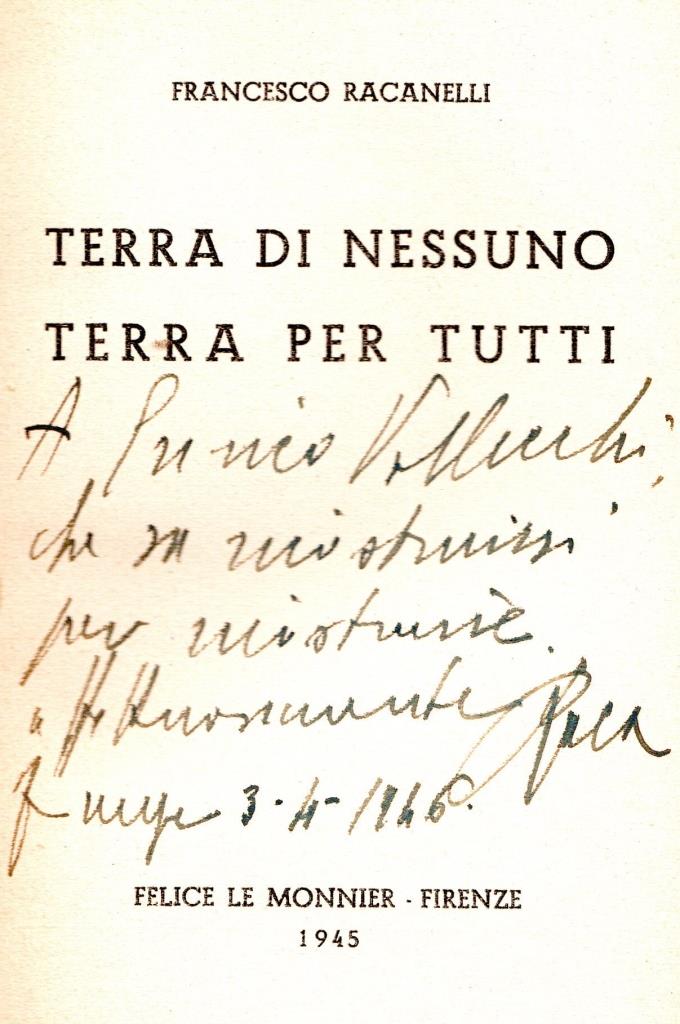 FRANCESCO RACANELLI
TERRA DI NESSUNO
TERRA PER TUTTI
A Enrico Vallecchi,
che sa
per
affettuosamente
Firenze 3-4-1946.
FELICE LE MONNIER - FIRENZE
1945